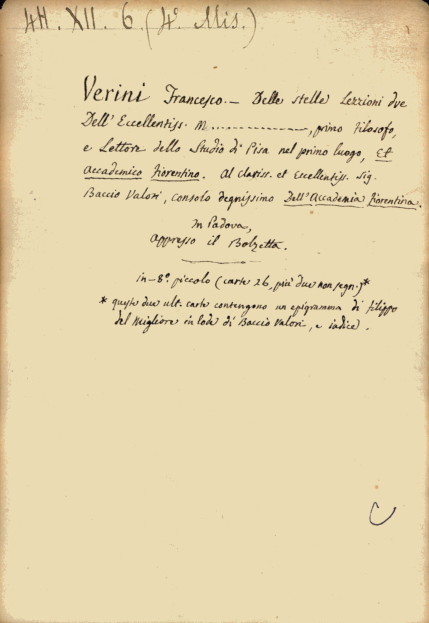 4H. XII. 6. (4º. Mis.)
Verini Francesco. — Delle stelle Lezzioni due
Dell' Eccellentiss. M. ..............., primo Filosofo,
e Lettore dello Studio di Pisa nel primo luogo, Et
Accademico Fiorentino. Al clariss. et Eccellentiss. Sig.
Baccio Valori, consolo degnissimo Dell' Accademia Fiorentina.
In Padova,
appresso il Bolzetta.
in-8º. piccolo (carte 26, più due non segn.)*
* queste due ult. carte contengono un epigramma di Filippo
del Migliore in lode di Baccio Valori, e indice.
C